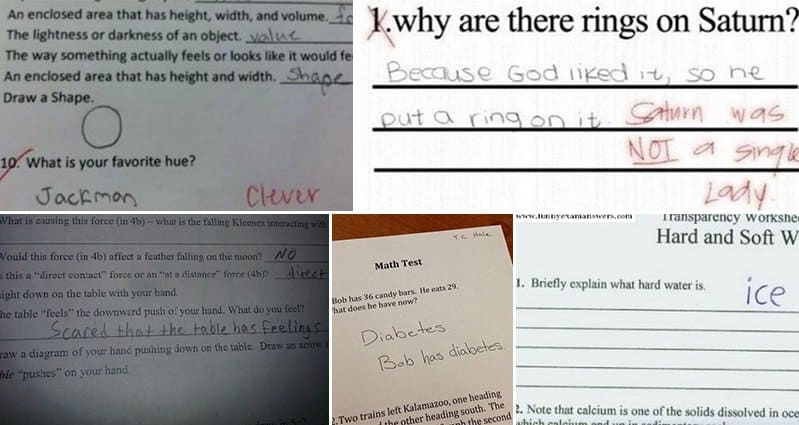 An enclosed area that has height, width, and volume.
The lightness or darkness of an object. value
The way something actually feels or looks like it would fe
An enclosed area that has height and width. Shape
Draw a Shape.
10. What is your favorite hue?
Jackman Clever
1. why are there rings on Saturn?
Because God liked it, so he
put a ring on it. Saturn was
NOT a single
Lady.
What is causing this force (in 4b) – what is the falling Kleenex interacting with
Would this force (in 4b) affect a feather falling on the moon? NO
this a "direct contact" force or an "at a distance" force (4b)? direct
ight down on the table with your hand.
he table "feels" the downward push of your hand. What do you feel?
Scared that the table has feelings
raw a diagram of your hand pushing down on the table. Draw an arrow
ble "pushes" on your hand
T.C. Hale
Math Test
Bob has 36 candy bars. He eats 29.
hat does he have now?
Diabetes
Bob has diabetes
2. Two trains left Kalamazoo, one heading
the other heading south. The
the second
www.funnyexamanswers.com
Transparency Workshe
Hard and Soft W
1. Briefly explain what hard water is.
ice
2. Note that calcium is one of the solids dissolved in oce
which calcium and